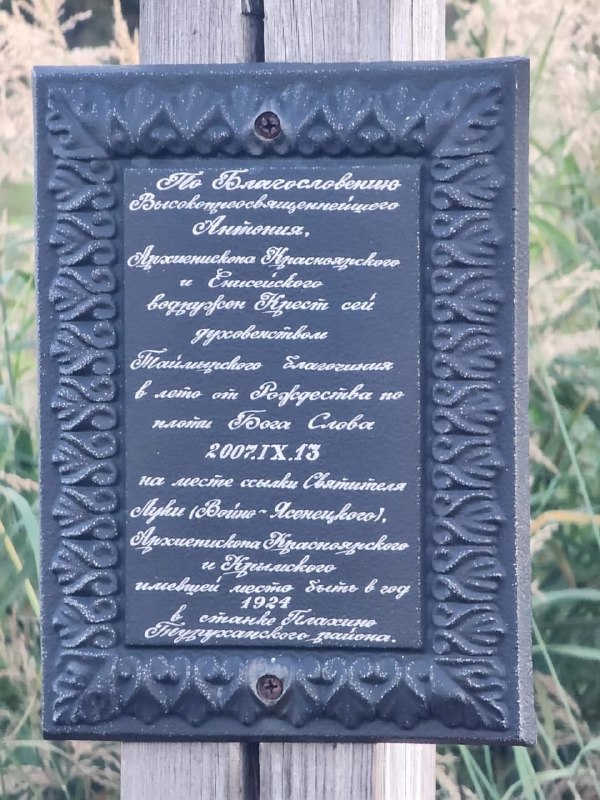 По Благословению
Высокопреосвященнейшего
Антония,
Архиепископа Красноярского
и Енисейского
водружен Крест сей
духовенством
Таймырского благочиния
в лето от Рождества по
плоти Бога Слова
2007.IX.13
на месте ссылки Святителя
Луки (Войно-Ясенецкого),
Архиепископа Красноярского
и Крымского
имевшей место быть в год
1924
в станке Плахино
Туруханского района.